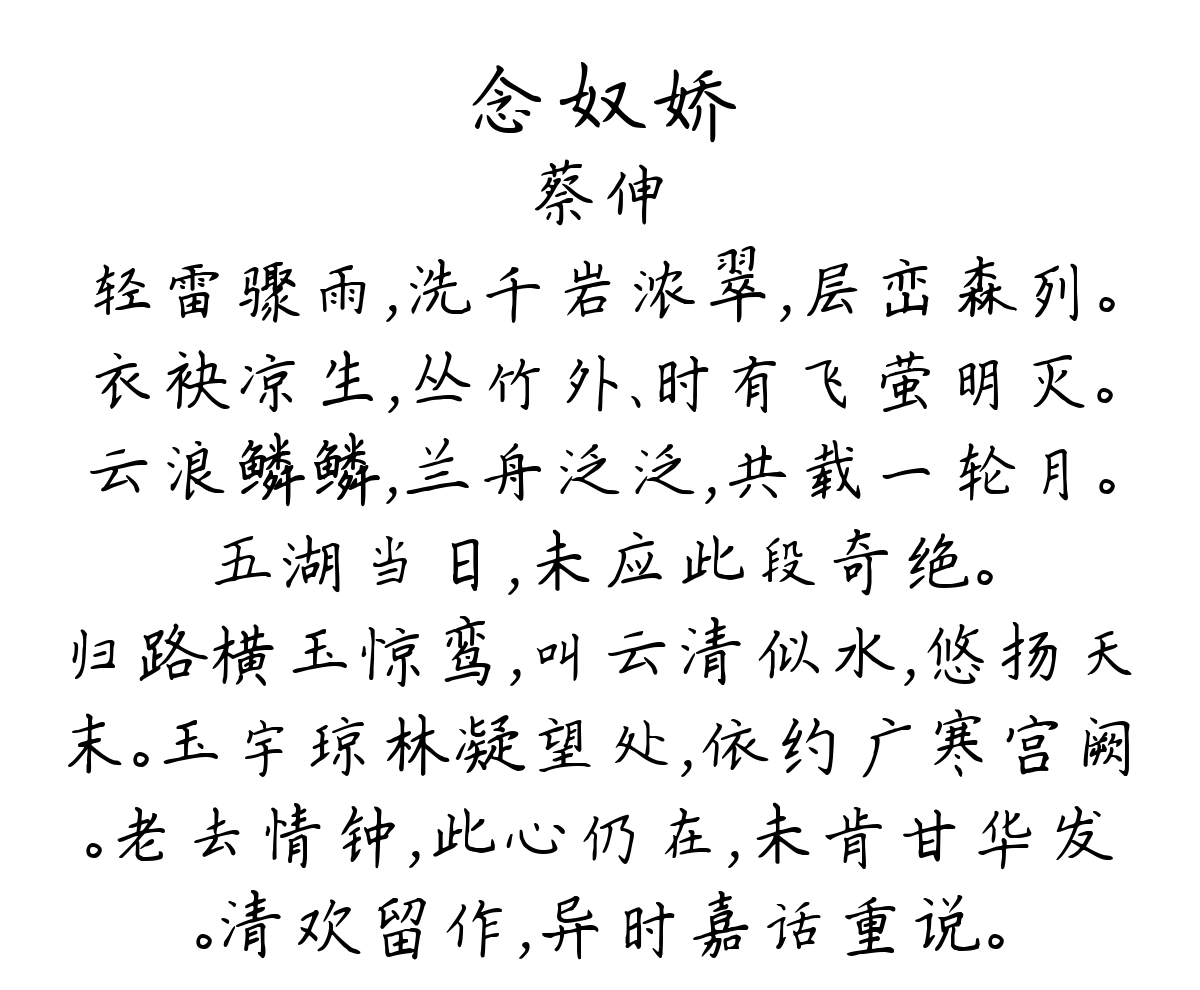 念奴娇
蔡伸
轻雷骤雨,洗千岩浓翠,层峦森列。
衣袂凉生,丛竹外、时有飞萤明灭。
云浪鳞鳞,兰舟泛泛,共载一轮月。
五湖当日,未应此段奇绝。
归路横玉惊鸾,叫云清似水,悠扬天
末。玉宇琼林凝望处,依约广寒宫阙
。老去情钟,此心仍在,未肯甘华发
。清欢留作,异时嘉话重说。